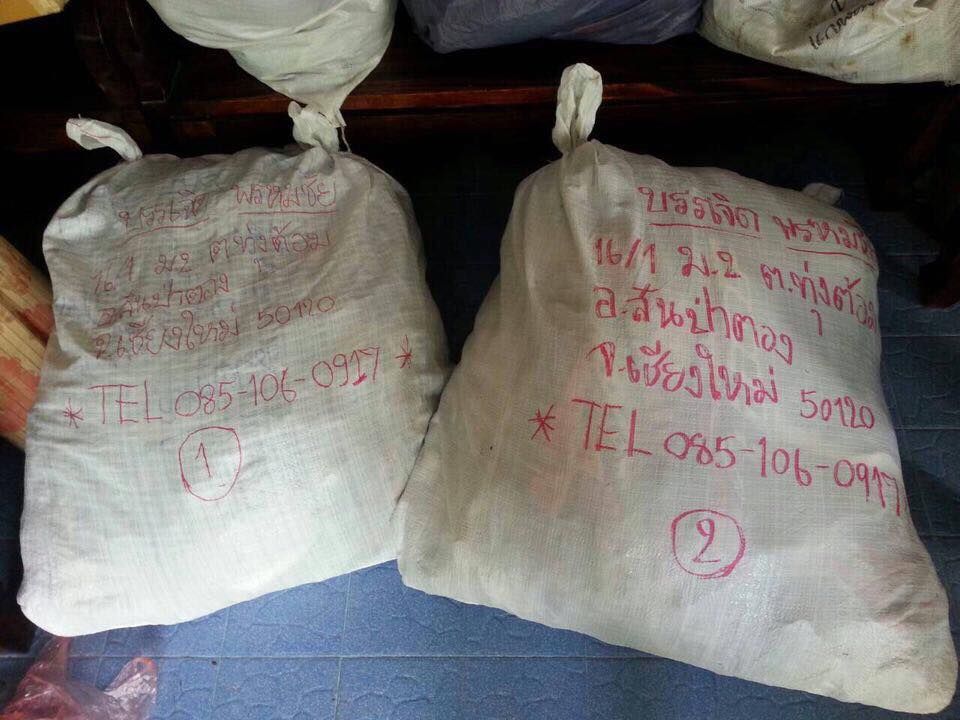 บรรเจิด พรหมชัย
16/1 ม.2 ต.ทุ่งต้อม
อ.สันป่าตอง
จ.เชียงใหม่ 50120
* TEL 085-106-0917 *
1
บรรเจิด พรหมชัย
16/1 ม.2 ต.ทุ่งต้อม
อ.สันป่าตอง
จ.เชียงใหม่ 50120
* TEL 085-106-0917
2